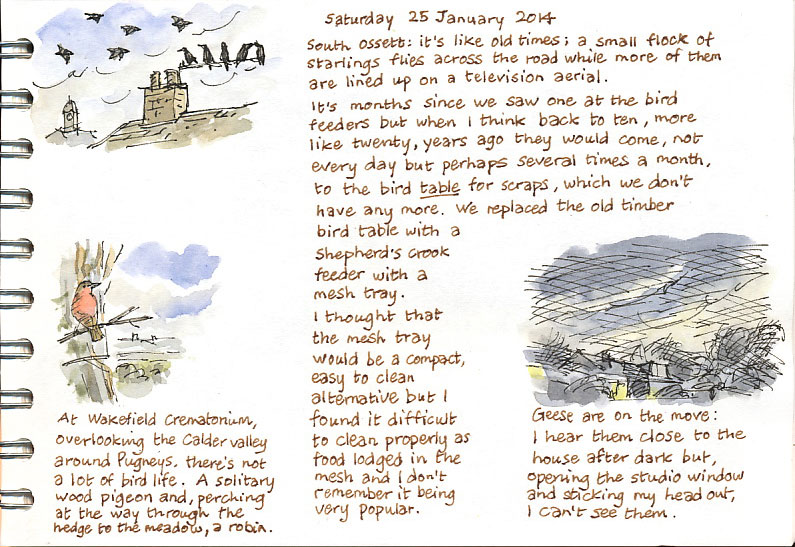 Saturday 25 January 2014
South Ossett: it's like old times; a small flock of
starlings flies across the road while more of them
are lined up on a television aerial.
It's months since we saw one at the bird
feeders but when I think back to ten, more
like twenty, years ago they would come, not
every day but perhaps several times a month,
to the bird table for scraps, which we don't
have any more. We replaced the old timber
bird table with a
Shepherd's Crook
feeder with a
mesh tray.
I thought that
the mesh tray
would be a compact,
easy to clean
alternative but I
found it difficult
to clean properly as
food lodged in the
mesh and I don't
remember it being
very popular.
At Wakefield Crematorium,
overlooking the Calder valley
around Pugneys. there's not
a lot of bird life. A solitary
wood pigeon and, perching
at the way through the
hedge to the meadow, a robin.
Geese are on the move:
I hear them close to the
house after dark but,
opening the studio window
and sticking my head out,
I can't see them.